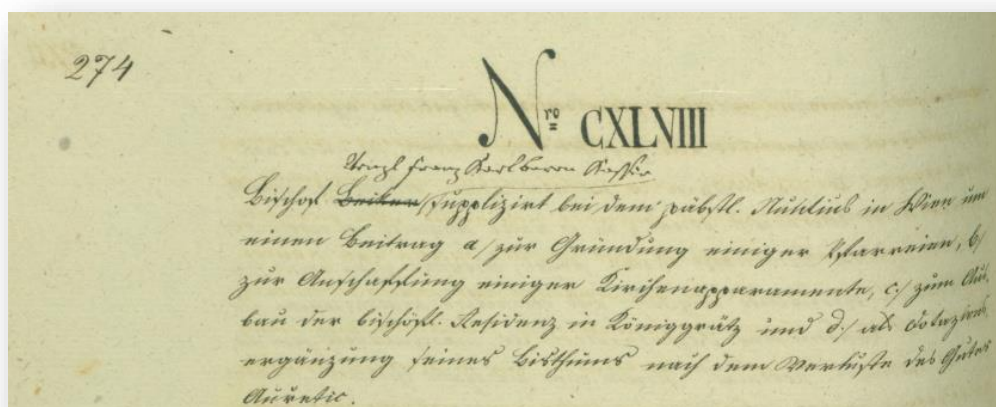 274
Nro CXLVIII
Wenzl Franz Karl baron
Bischof Becker supplizirt bei dem päbstl. Nuntius in Wien um
einen Beitrag a/ zur Gründung einiger Pfarreien, b/
zur Anschaffung einiger Kirchenapparamente, c/ zum Aus-
bau der bischöfl. Residenz in Königgrätz und d./ als Dotazions-
ergänzung seines Bisthums nach dem Verluste des Gutes
Auretic.